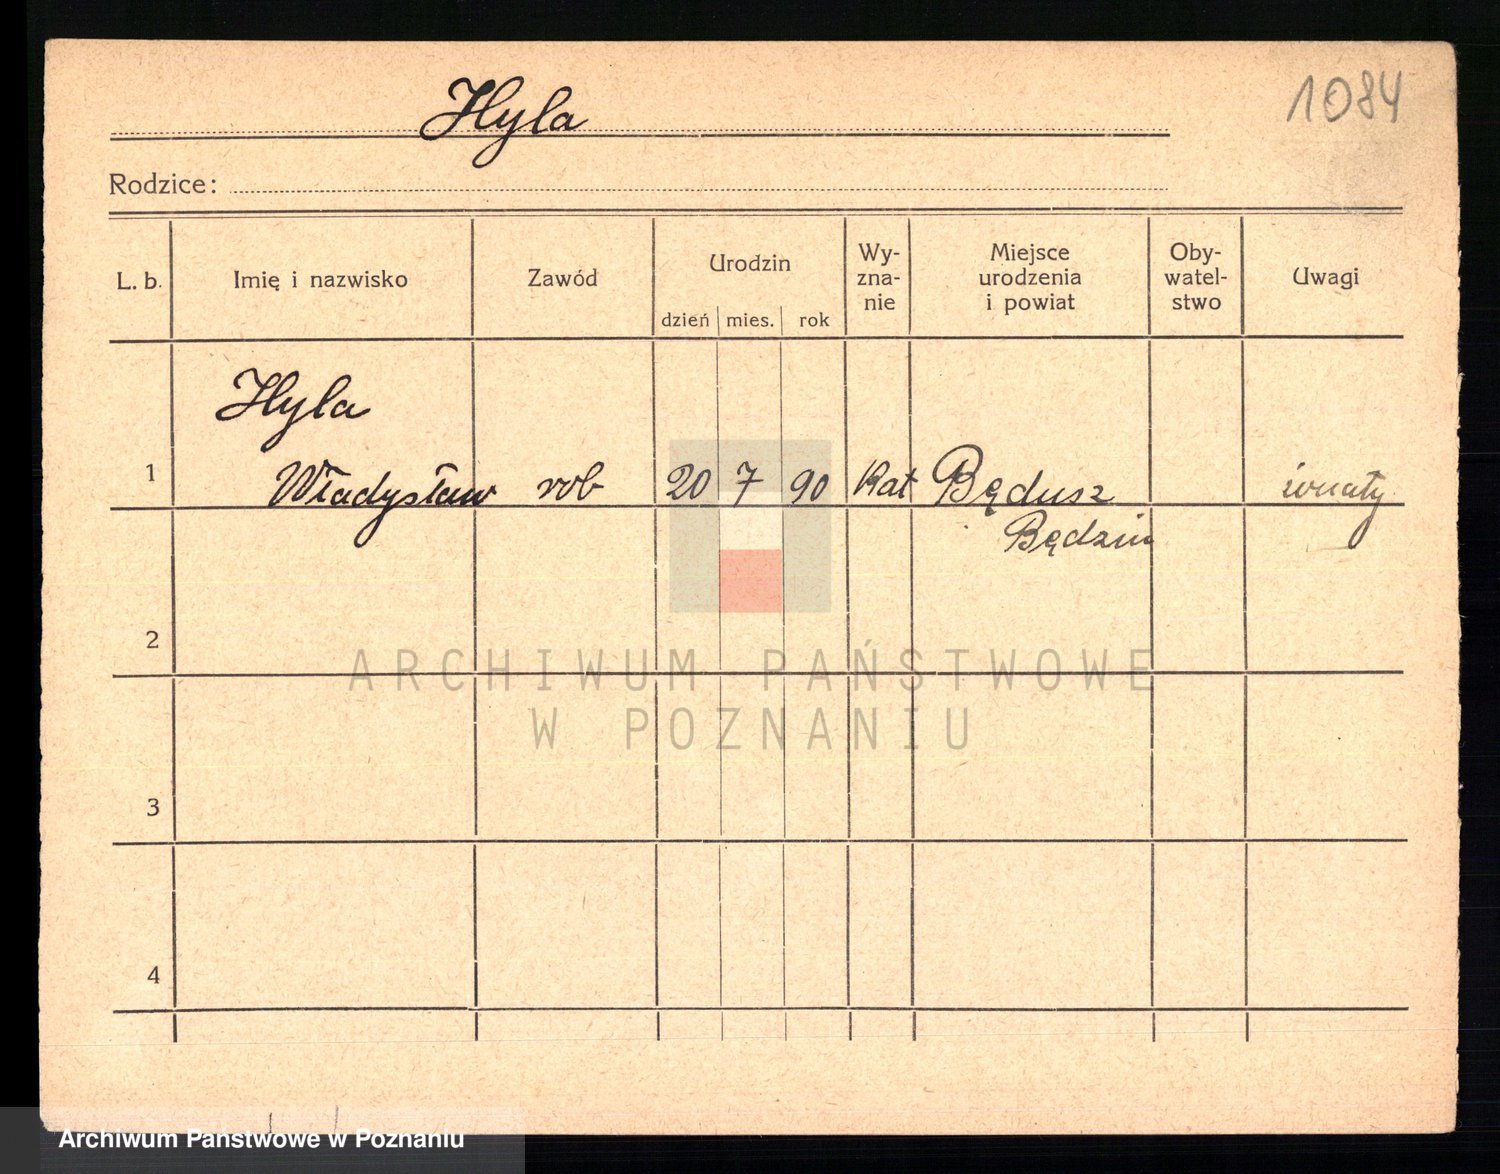 Hyla
1084
Rodzice:
L. b.
Imię i nazwisko
Zawód
Urodzin
dzień mies. rok
Wy-
zna-
nie
Miejsce
urodzenia
i powiat
Oby-
watel-
stwo
Uwagi
Hyla
1 Władysław rob 20 7 90 Kat Będusz
Będzin
2
3
4
ARCHIWUM PAŃSTWOWE
W POZNANIU
Archiwum Państwowe w Poznaniu